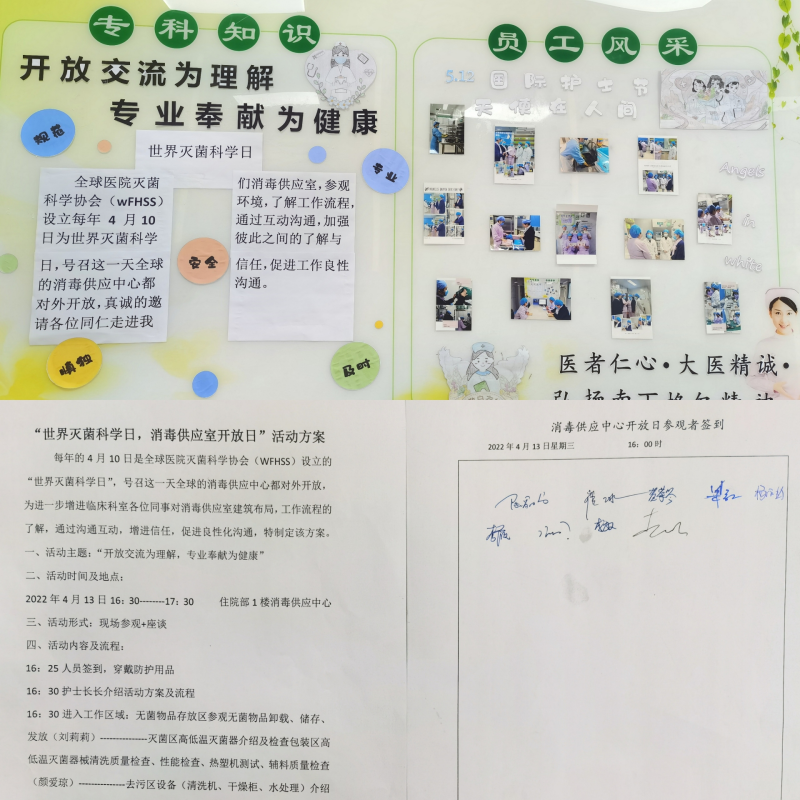 专科知识
开放交流为理解
专业奉献为健康
规范
世界灭菌科学日
专业
全球医院灭菌
科学协会（wFHSS）
设立每年 4 月 10
日为世界灭菌科学
日，号召这一天全球
的消毒供应中心都
对外开放，真诚的邀
请各位同仁走进我
们消毒供应室，参观
环境，了解工作流程，
通过互动沟通，加强
彼此之间的了解与
信任，促进工作良性
沟通。
安全
慎独
及时
员工风采
5.12 国际护士节
天使在人间
Angels
in
white
医者仁心•大医精诚•
“世界灭菌科学日，消毒供应室开放日”活动方案
每年的 4 月 10 日是全球医院灭菌科学协会（WFHSS）设立的
“世界灭菌科学日”，号召这一天全球的消毒供应中心都对外开放，
为进一步增进临床科室各位同事对消毒供应室建筑布局，工作流程的
了解，通过沟通互动，增进信任，促进良性化沟通，特制定该方案。
一、活动主题：“开放交流为理解，专业奉献为健康”
二、活动时间及地点：
2022 年 4 月 13 日 16：30--------17：30 住院部 1 楼消毒供应中心
三、活动形式：现场参观+座谈
四、活动内容及流程：
16：25 人员签到，穿戴防护用品
16：30 护士长长介绍活动方案及流程
16：30 进入工作区域：无菌物品存放区参观无菌物品卸载、储存、
发放（刘莉莉）---------------灭菌区高低温灭菌器介绍及检查包装区高
低温灭菌器械清洗质量检查、性能检查、热塑机测试、辅料质量检查
（颜爱琼）---------------去污区设备（清洗机、干燥柜、水处理）介绍
消毒供应中心开放日参观者签到
2022 年 4 月 13 日星期三 16：00 时